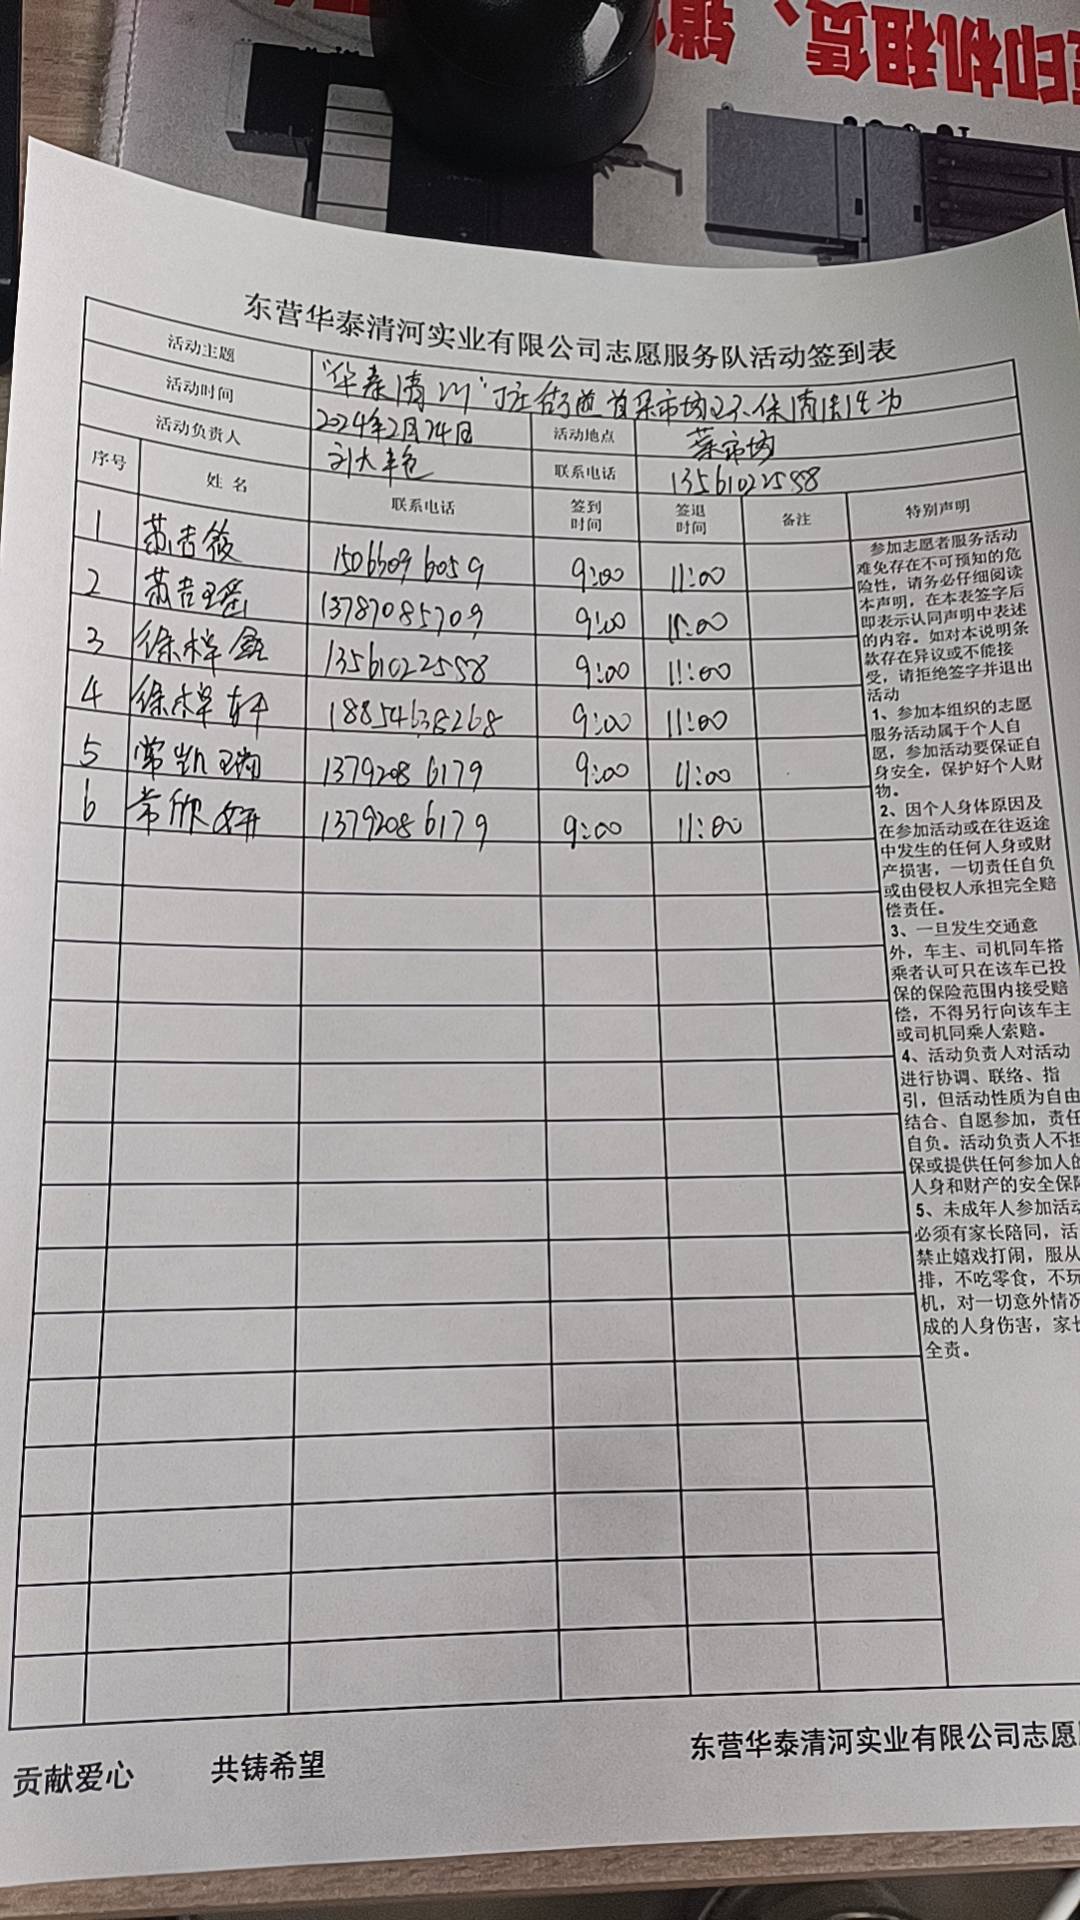 印机租赁、
东营华泰清河实业有限公司志愿服务队活动签到表
活动主题 "华泰清川"丁庄街道首菜市场环保清洁
活动时间 2024年2月24日 活动地点 菜市场
活动负责人 联系电话 13561022558
序号 姓名 联系电话 签到时间 签退时间 备注 特别声明
1 苏吉筱 15066096059 9:00 11:00
2 苏吉瑶 13787085709 9:00 11:00
3 徐梓鑫 13561022558 9:00 11:00
4 徐梓轩 18854638268 9:00 11:00
5 常凯瑞 13792086179 9:00 11:00
6 常欣妍 13792086179 9:00 11:00
参加志愿者服务活动
难免存在不可预知的危
险性，请务必仔细阅读
本声明，在本表签字后
即表示认同声明中表述
的内容。如对本说明条
款存在异议或不能接
受，请拒绝签字并退出
活动
1、参加本组织的志愿
服务活动属于个人自
愿，参加活动要保证自
身安全，保护好个人财
物。
2、因个人身体原因及
在参加活动或在往返途
中发生的任何人身或财
产损害，一切责任自负
或由侵权人承担完全赔
偿责任。
3、一旦发生交通意
外，车主、司机同车搭
乘者认可只在该车已投
保的保险范围内接受赔
偿，不得另行向该车主
或司机同乘人索赔。
4、活动负责人对活动
进行协调、联络、指
引，但活动性质为自由
结合、自愿参加，责任
自负。活动负责人不担
保或提供任何参加人的
人身和财产的安全保障
5、未成年人参加活动
必须有家长陪同，活
禁止嬉戏打闹，服从
排，不吃零食，不玩
机，对一切意外情况
成的人身伤害，家长
全责。
贡献爱心 共铸希望 东营华泰清河实业有限公司志愿